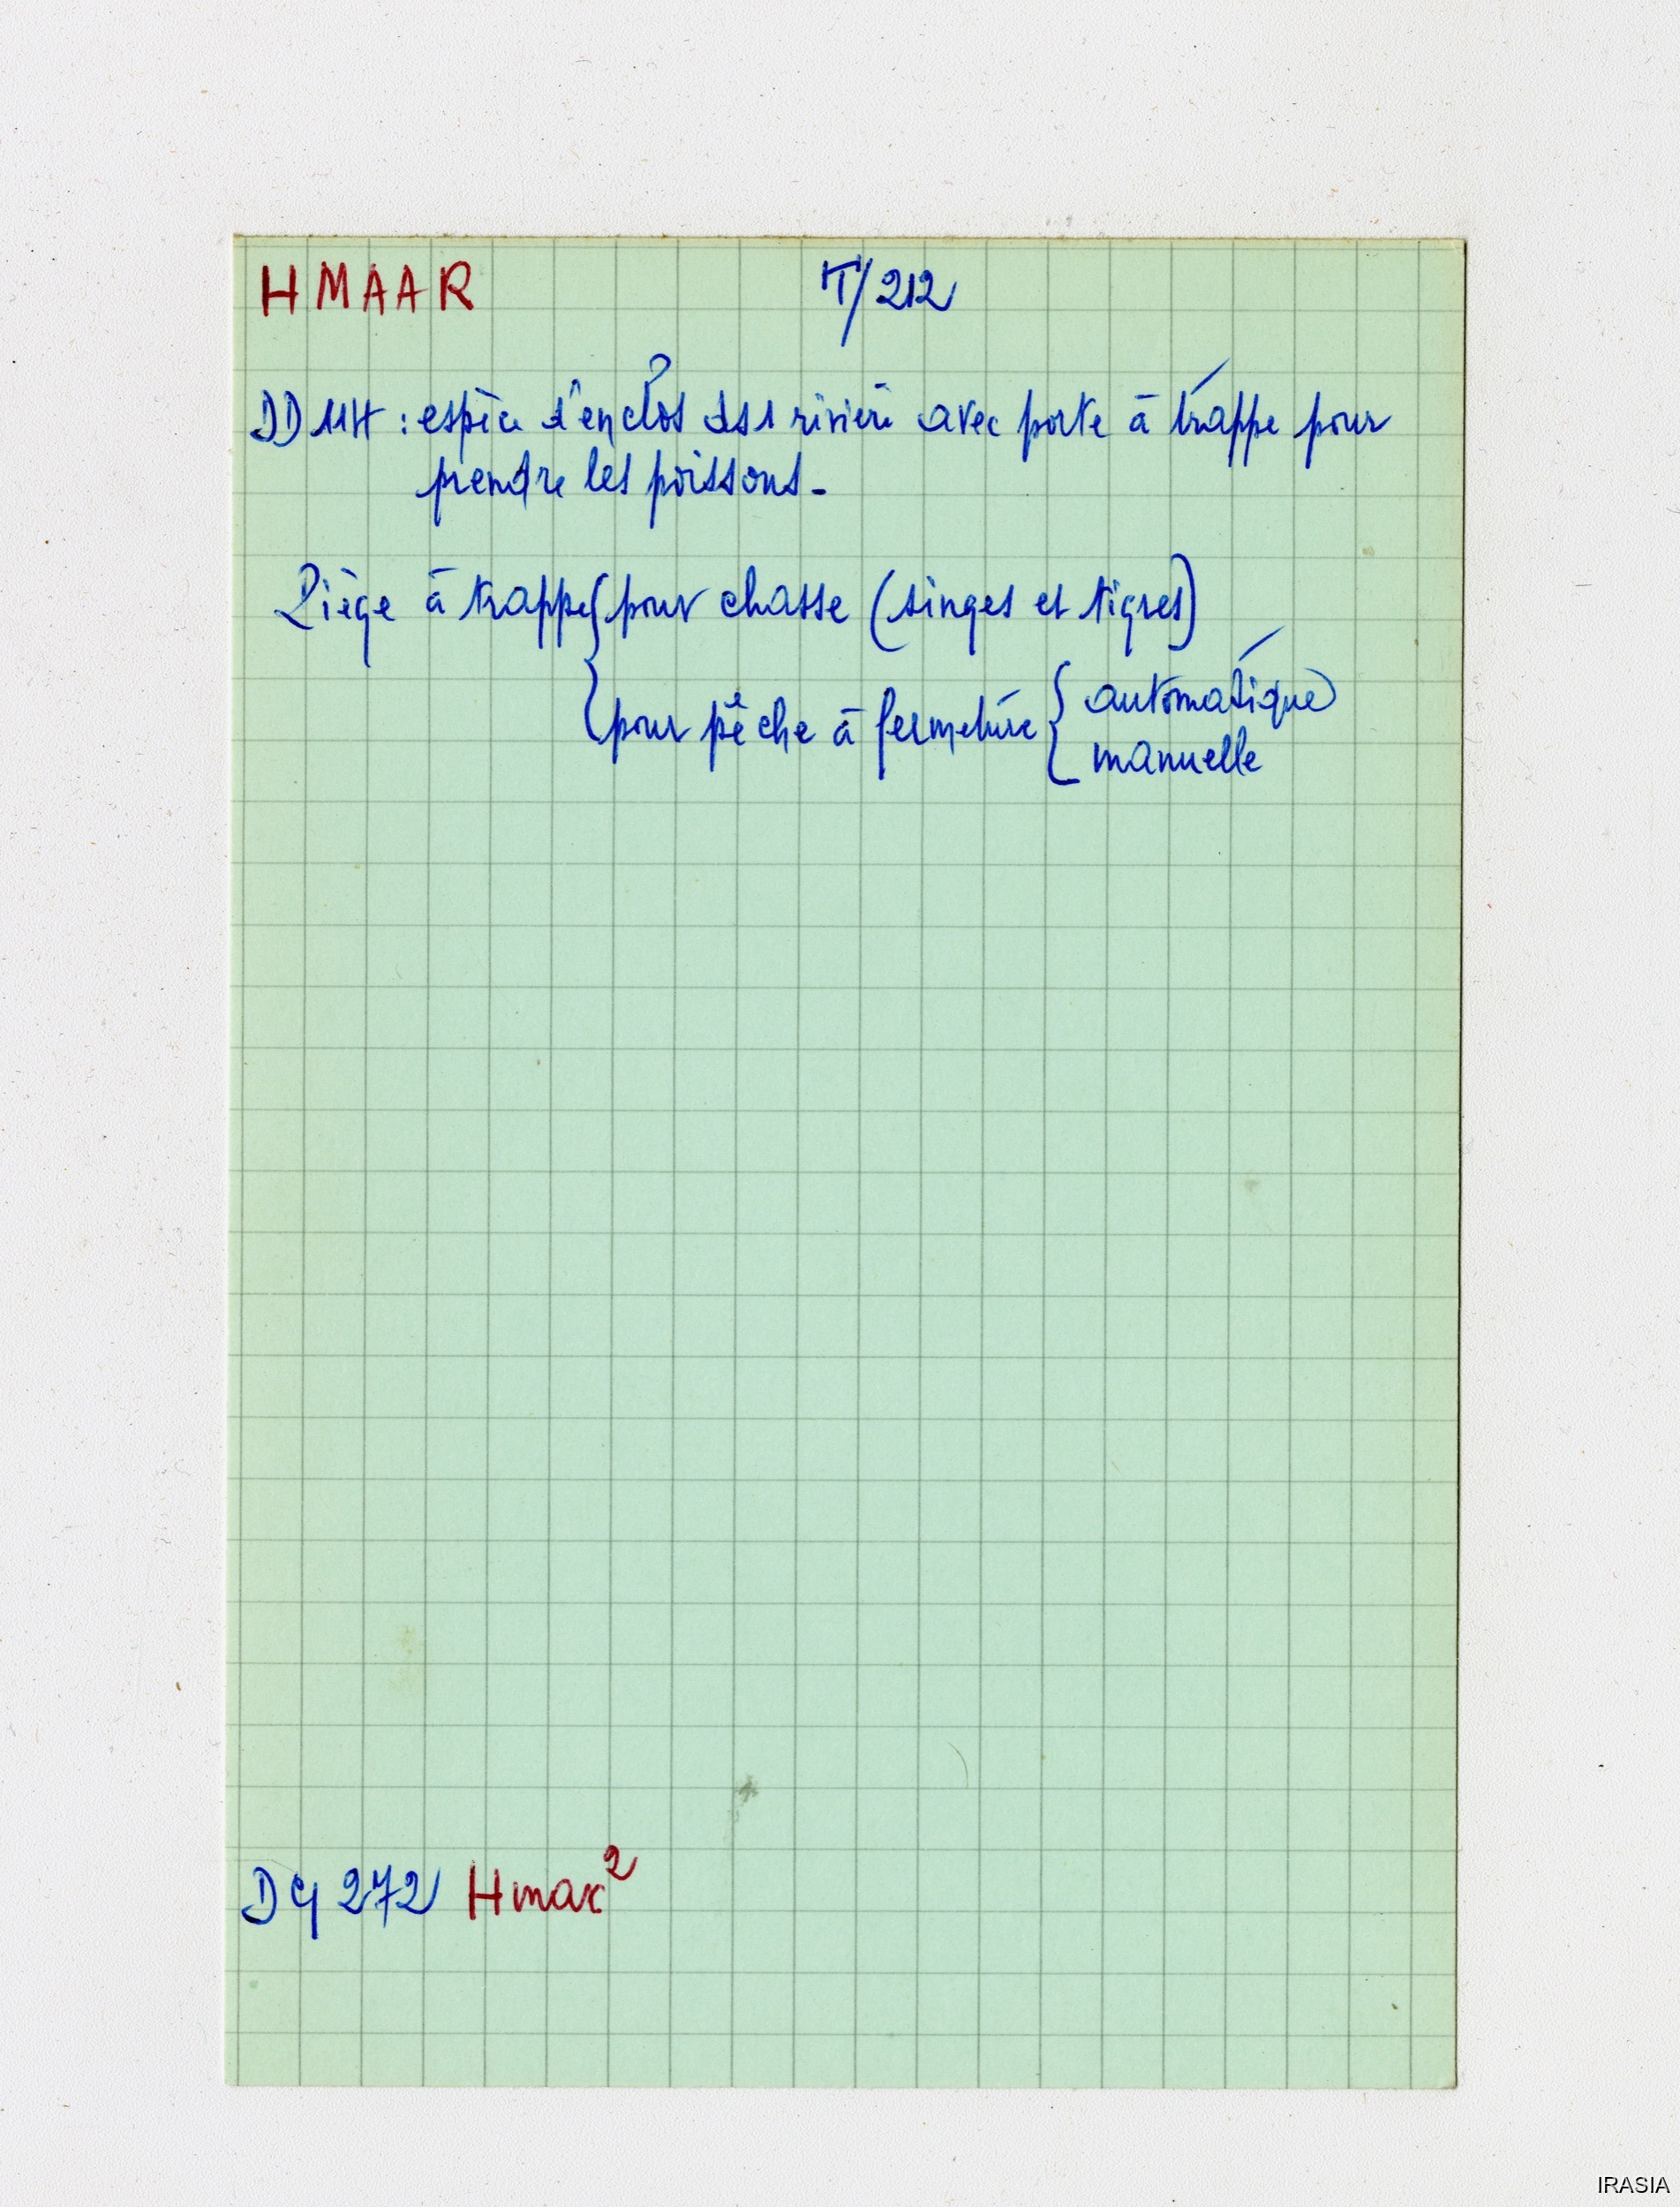 HMAAR T/212
DD 114 : espèce d'enclos ds 1 rivière avec porte à trappe pour
prendre les poissons -
Piège à trappe { pour chasse (singes et tigres)
{ pour pêche à fermeture { automatique
manuelle
DG 272 Hmar²
IRASIA